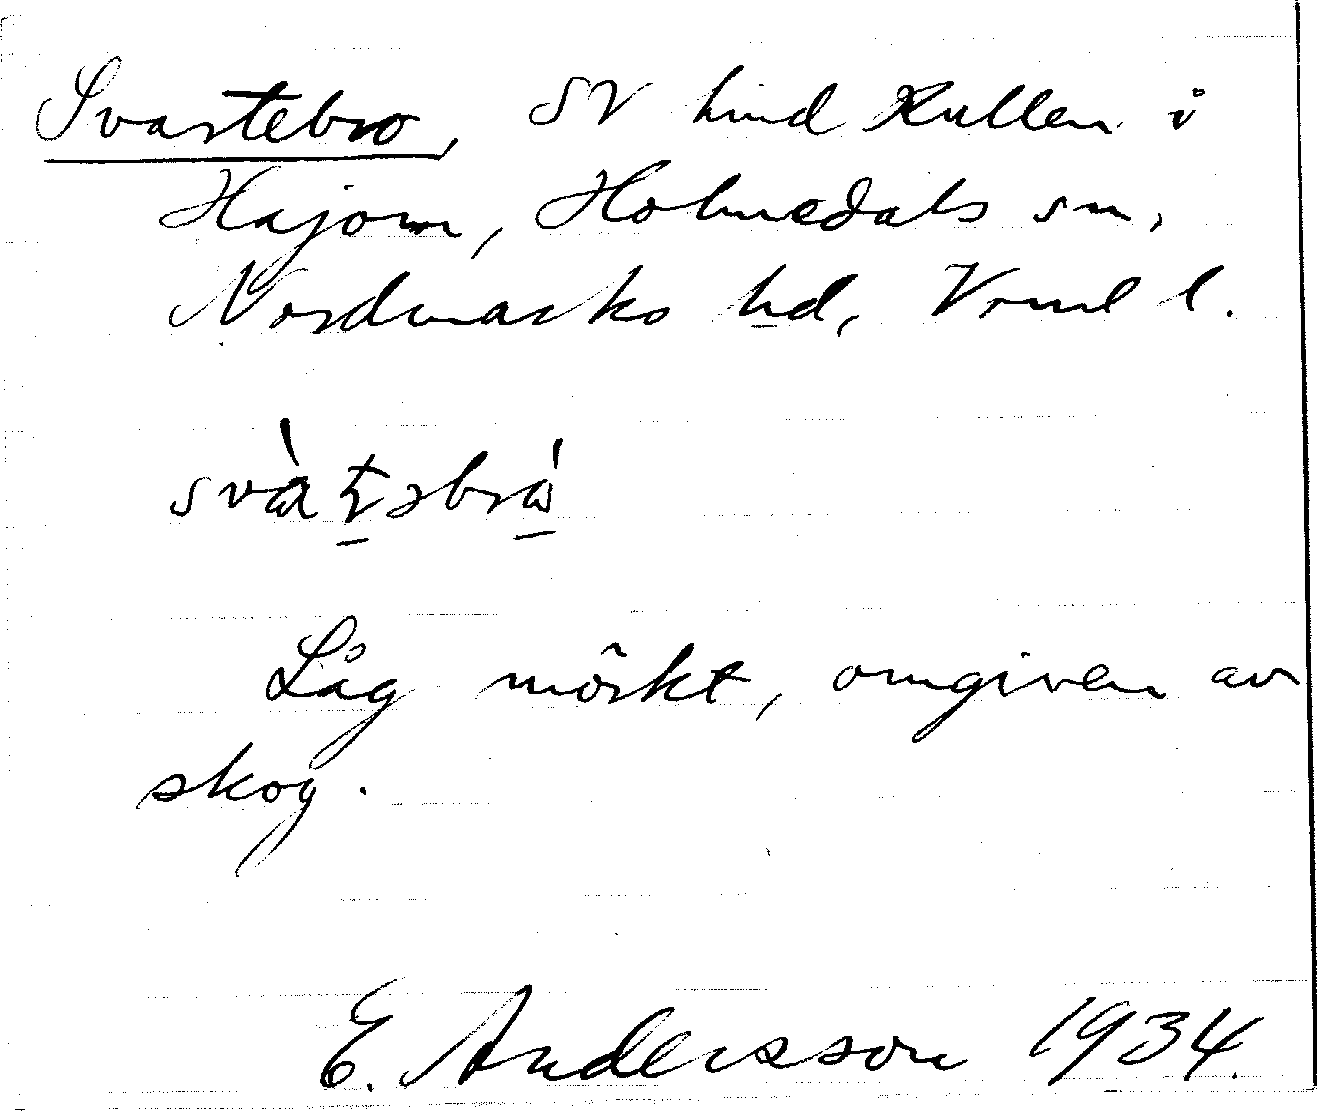 Svartebro, SV hmd Kullen i
Hajom, Holmedals sn,
Nordmarks hd, Vrml l.
svàṭəbrá
Låg mörkt, omgiven av
skog.
E. Andersson 1934.